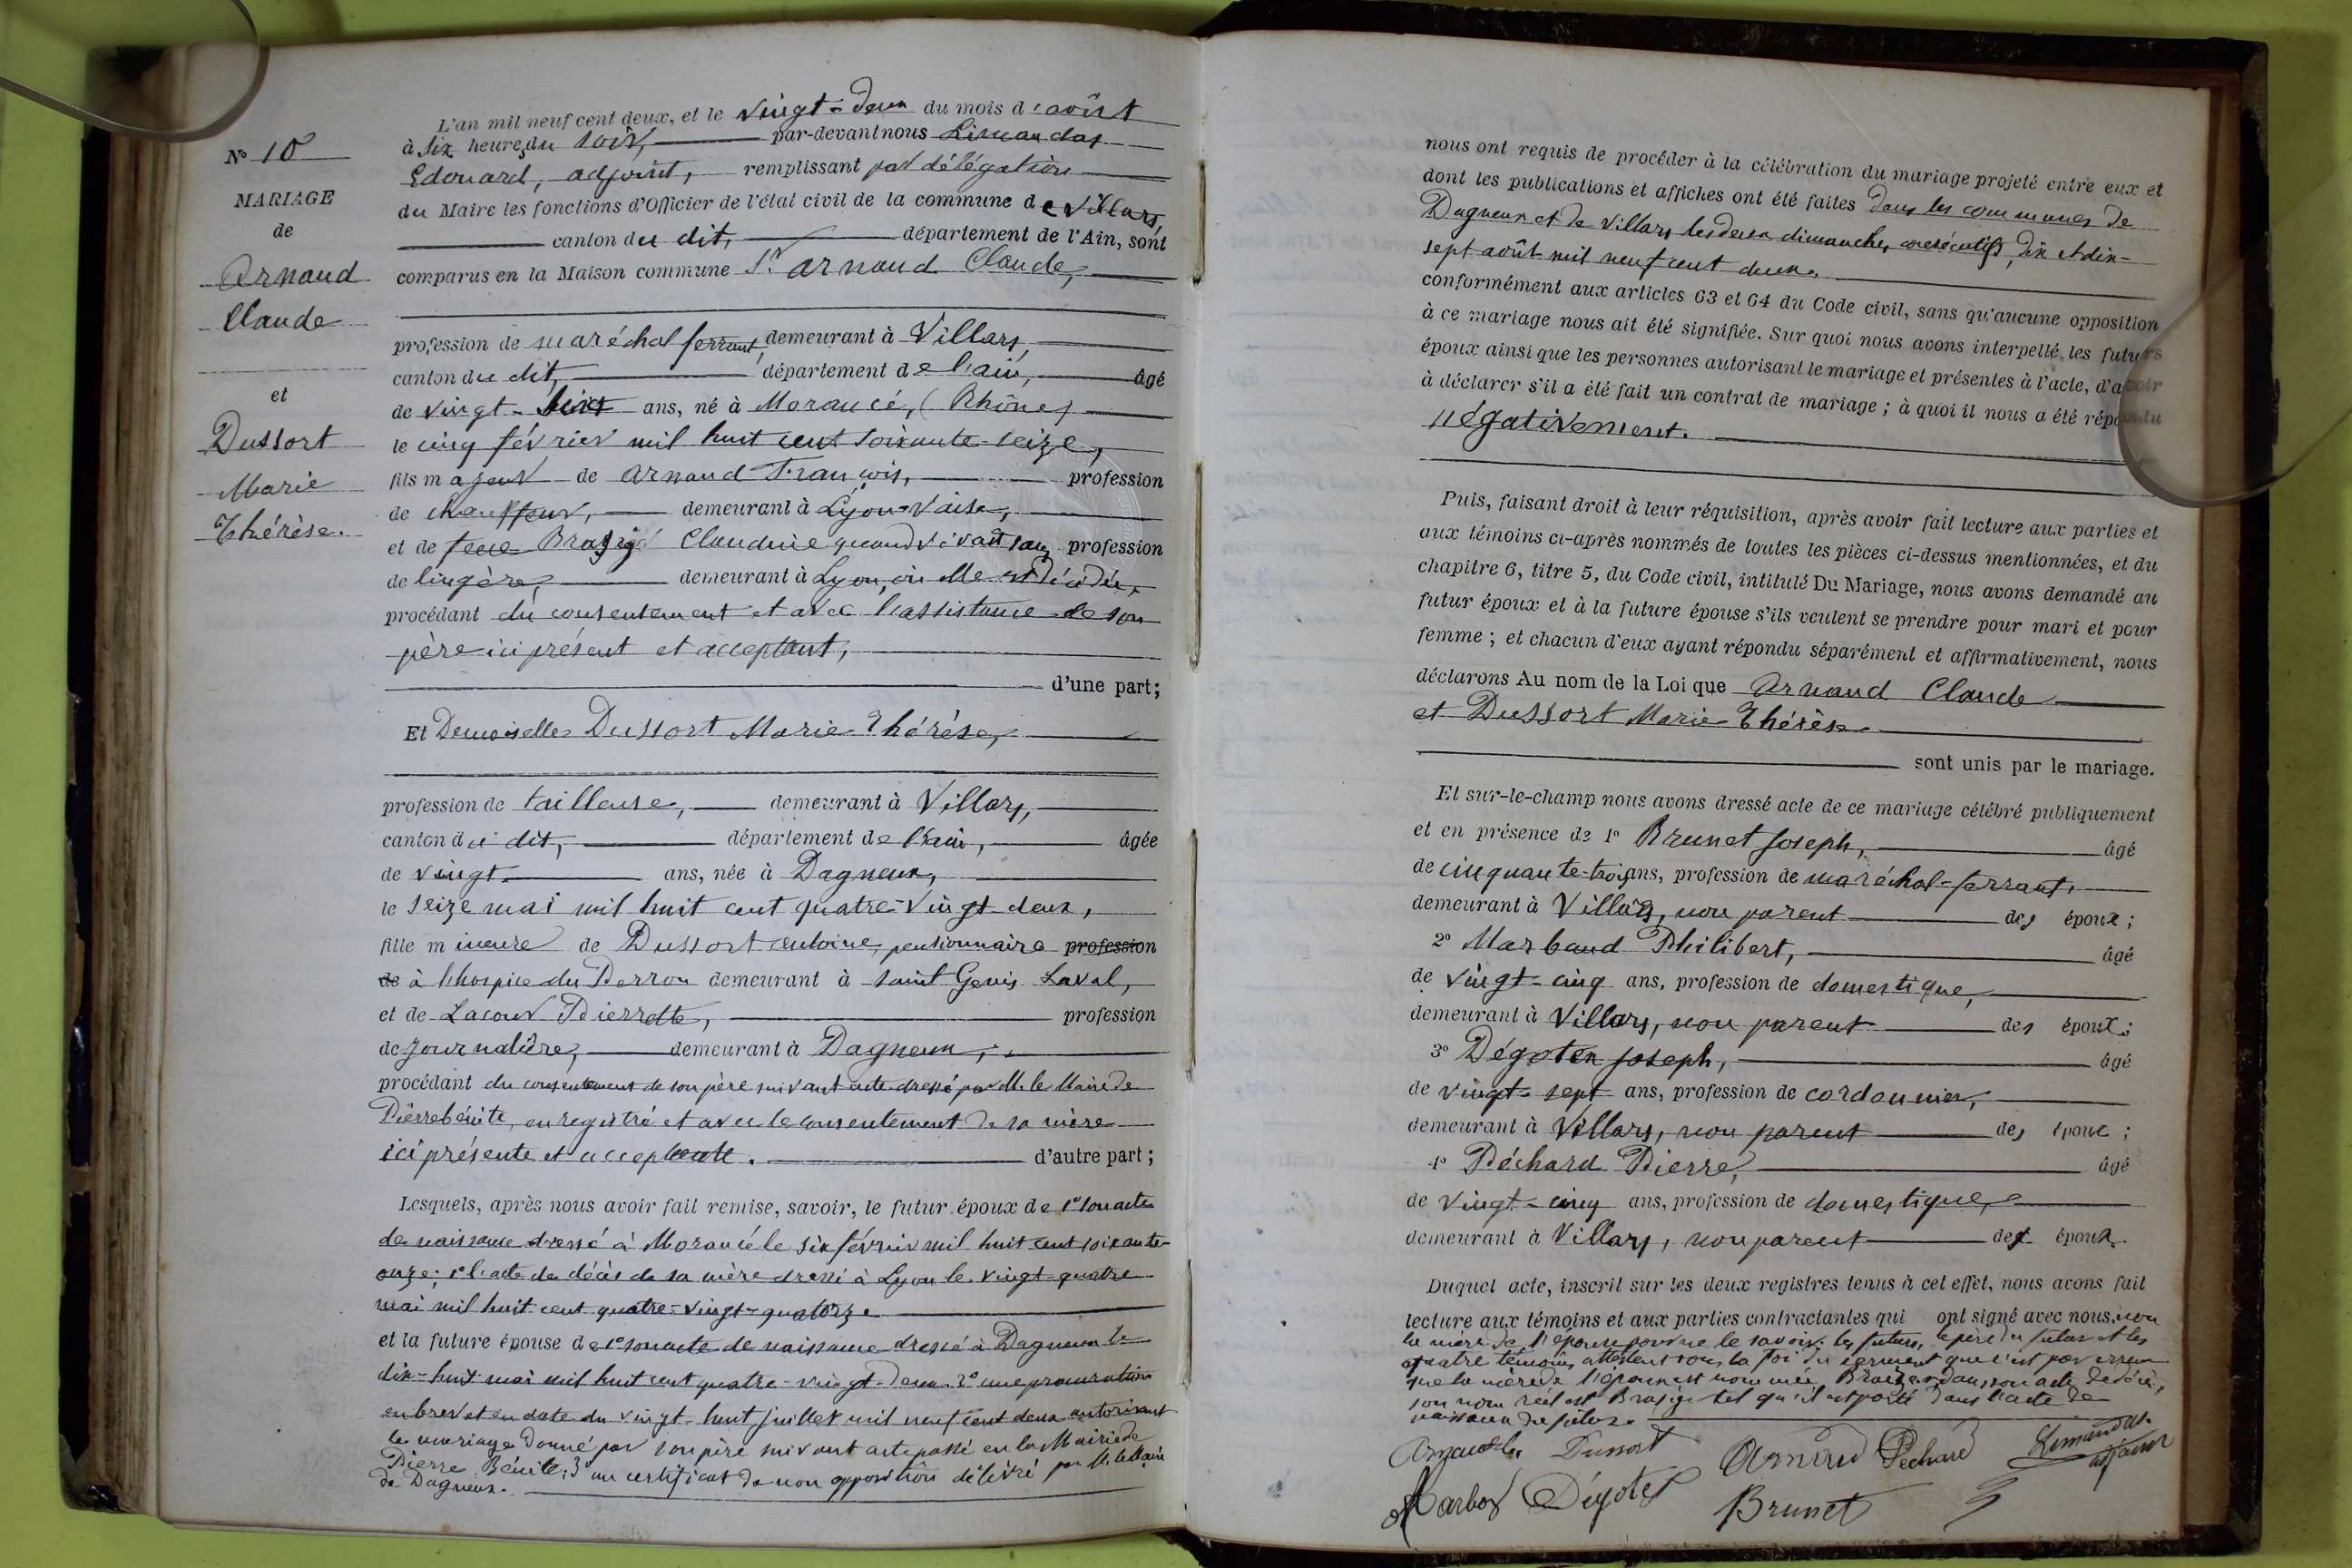 N° 10
MARIAGE
de
Arnaud
Claude
et
Dussort
Marie
Thérèse.
L'an mil neuf cent deux, et le vingt-deux du mois d'août
à six heures du soir, par-devant nous Limandas
Edouard, adjoint, remplissant par délégation
du Maire les fonctions d'Officier de l'état civil de la commune de Villars,
canton du dit, département de l'Ain, sont
comparus en la Maison commune Sr Arnaud Claude,
profession de maréchal ferrant, demeurant à Villars,
canton du dit, département de l'ain, âgé
de vingt- ans, né à Morancé, (Rhône)
le cinq février mil huit cent soixante-seize,
fils majeur de Arnaud François, profession
de chauffeur, demeurant à Lyon-Vaise,
et de feue Brasigé Claudine quand vivait sans profession
de lingère, demeurant à Lyon, où elle est décédée,
procédant du consentement et avec l'assistance de son
père ici présent et acceptant,
d'une part;
Et Demoiselle Dussort Marie Thérèse,
profession de tailleuse, demeurant à Villars,
canton du dit, département de l'ain, âgée
de vingt ans, née à Dagneux,
le seize mai mil huit cent quatre-vingt-deux,
fille mineure de Dussort antoine, pensionnaire profession
de à l'hospice du Perron demeurant à saint Genis Laval,
et de Lacour Pierrette, profession
de journalière, demeurant à Dagneux,
procédant du consentement de son père suivant acte dressé par M. le Maire de
Pierrebénite, enregistré et avec le consentement de sa mère
ici présente et acceptante. d'autre part;
Lesquels, après nous avoir fait remise, savoir, le futur époux de 1° son acte
de naissance dressé à Morancé le six février mil huit cent soixante-
onze; 2° l'acte de décès de sa mère dressé à Lyon le vingt-quatre
mai mil huit cent quatre-vingt-quatorze
et la future épouse de 1° son acte de naissance dressé à Dagneux le
dix-huit mai mil huit cent quatre-vingt-deux. 2° une procuration
en brevet en date du vingt-huit juillet mil neuf cent deux autorisant
le mariage donné par son père suivant acte passé en la Mairie de
Pierre Bénite; 3° un certificat de non opposition délivré par M. le Maire
de Dagneux.
nous ont requis de procéder à la célébration du mariage projeté entre eux et
dont les publications et affiches ont été faites dans les communes de
Dagneux et de Villars les deux dimanches consécutifs, dix et dix-
sept août mil neuf cent deux.
conformément aux articles 63 et 64 du Code civil, sans qu'aucune opposition
à ce mariage nous ait été signifiée. Sur quoi nous avons interpellé les futurs
époux ainsi que les personnes autorisant le mariage et présentes à l'acte, d'avoir
à déclarer s'il a été fait un contrat de mariage; à quoi il nous a été répondu
négativement.
Puis, faisant droit à leur réquisition, après avoir fait lecture aux parties et
aux témoins ci-après nommés de toutes les pièces ci-dessus mentionnées, et du
chapitre 6, titre 5, du Code civil, intitulé Du Mariage, nous avons demandé au
futur époux et à la future épouse s'ils veulent se prendre pour mari et pour
femme; et chacun d'eux ayant répondu séparément et affirmativement, nous
déclarons Au nom de la Loi que Arnaud Claude
et Dussort Marie Thérèse
sont unis par le mariage.
Et sur-le-champ nous avons dressé acte de ce mariage célébré publiquement
et en présence de 1° Brunet Joseph, âgé
de cinquante-trois ans, profession de maréchal-ferrant,
demeurant à Villars, non parent des époux;
2° Marbaud Philibert, âgé
de vingt-cinq ans, profession de domestique,
demeurant à Villars, non parent des époux;
3° Dégotex Joseph, âgé
de vingt-sept ans, profession de cordonnier,
demeurant à Villars, non parent des époux;
4° Péchard Pierre, âgé
de vingt-cinq ans, profession de domestique,
demeurant à Villars, non parent des époux.
Duquel acte, inscrit sur les deux registres tenus à cet effet, nous avons fait
lecture aux témoins et aux parties contractantes qui ont signé avec nous, non
la mère de l'épouse pour ne le savoir. les futurs, le père du futur et les
quatre témoins attestent sous la foi du serment que c'est par erreur
que la mère de l'époux est nommée dans son acte de décès,
son nom réel est Brasigé tel qu'il est porté dans l'acte de
naissance du futur.
Arnaud Dussort Arnaud Péchard Limandas
adjoint
Marbos Dégotex Brunet